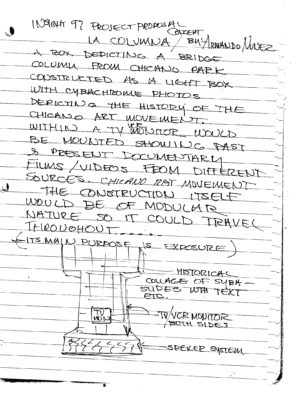 INSIGHT 97 PROJECT PROPOSAL
CONCEPT
LA COLUMNA / BY: ARMANDO
A BOX DEPICTING A BRIDGE
COLUMN FROM CHICANO PARK
CONSTRUCTED AS A LIGHT BOX
WITH CYBACHROME PHOTOS
DEPICTING THE HISTORY OF THE
CHICANO ART MOVEMENT.
WITHIN A TV MONITOR WOULD
BE MOUNTED SHOWING PAST
& PRESENT DOCUMENTARY
FILMS / VIDEOS FROM DIFFERENT
SOURCES. CHICANO ART MOVEMENT
THE CONSTRUCTION ITSELF
WOULD BE OF MODULAR
NATURE SO IT COULD TRAVEL
THROUGHOUT......
(ITS MAIN PURPOSE IS EXPOSURE)
HISTORICAL
COLLAGE OF SYBA-
SLIDES WITH TEXT
ETC.
TV
MON
TV/VCR MONITOR
/BOTH SIDES
SPEEKER SYSTEM